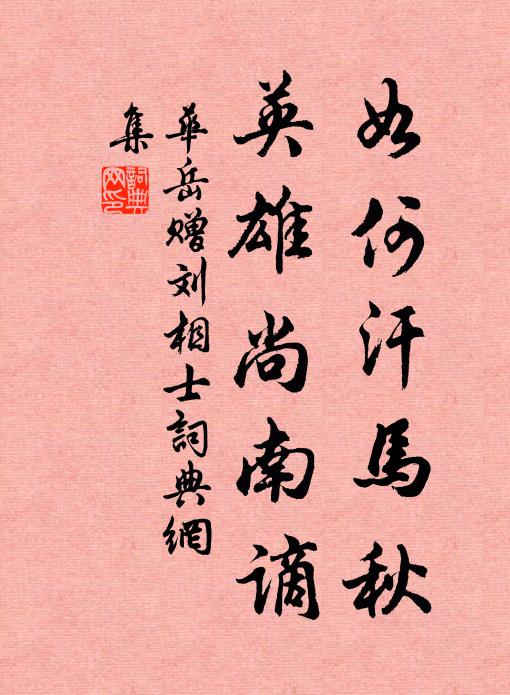 如何汗馬秋
英雄尚南謫
華岳赠刘相士詞典網
集
詞典
网印